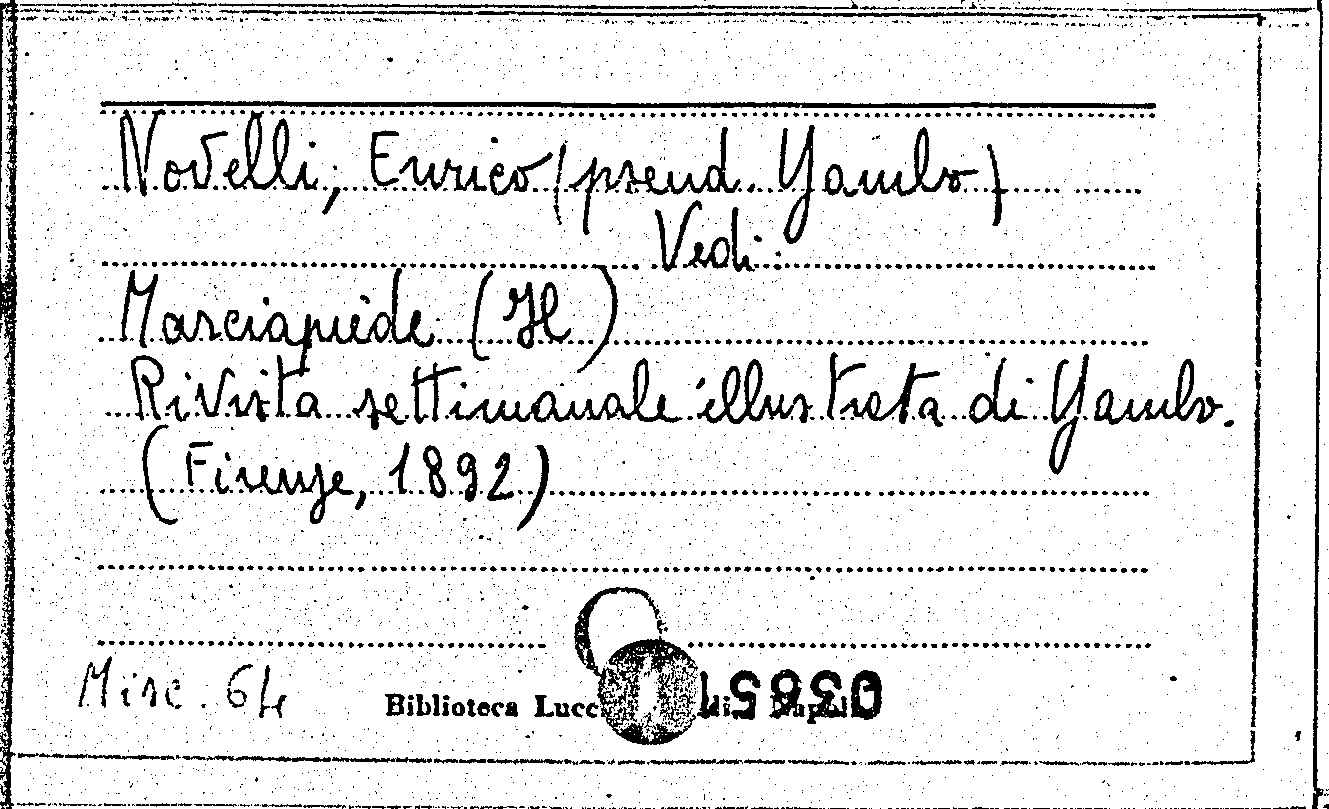 Novelli, Enrico (pseud. Yambo)
Vedi:
Marciapiede (Il)
Rivista settimanale illustrata di Yambo.
(Firenze, 1892)
Misc. 64
Biblioteca di Napoli